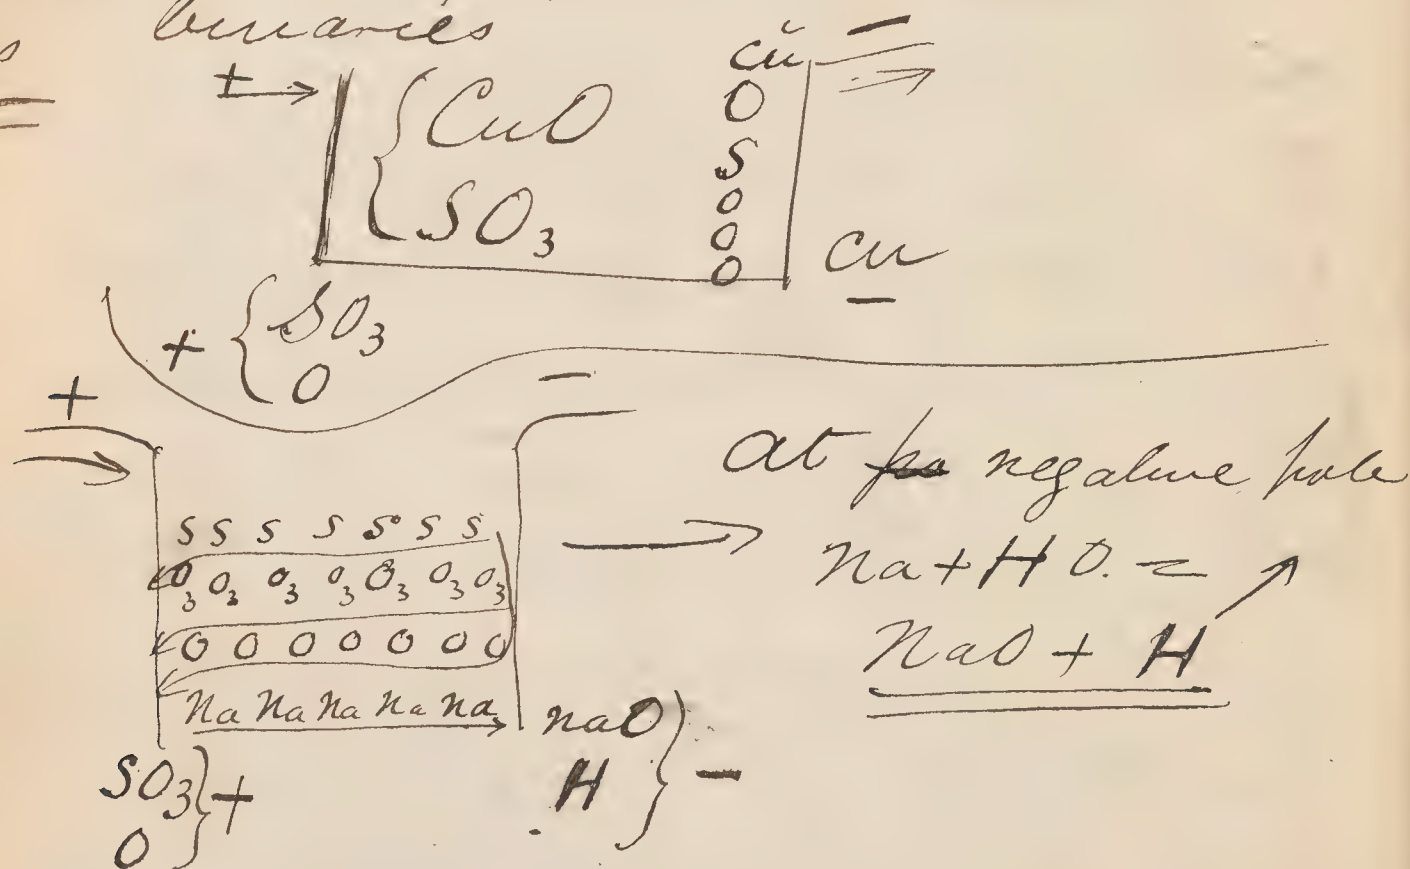 binaries
+ → { CuO
SO3
cu —
O
S
O
O
O
cu
—
+ { SO3
O
+
—
S S S S S S S
O3 O3 O3 O3 O3 O3 O3
O O O O O O O
Na Na Na Na Na
SO3 } +
O
naO } —
H
at negative pole
Na + HO. =
NaO + H